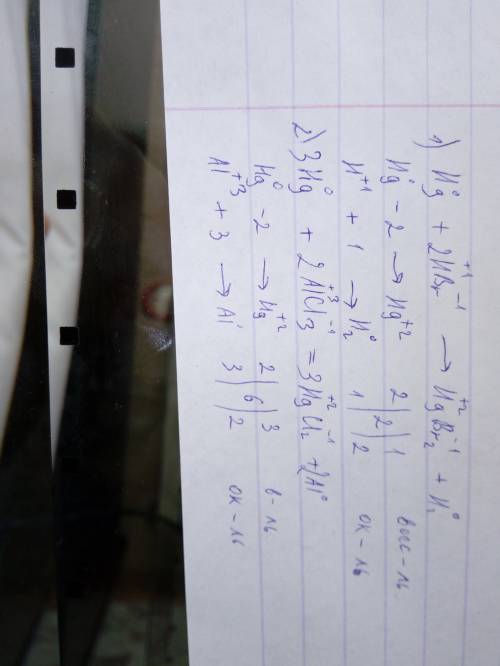 1) Hg⁰ + 2H⁺¹Br⁻¹ → Hg⁺²Br₂⁻¹ + H₂⁰
Hg⁰ - 2 → Hg⁺² 2 | 2 | 1 восс-ль
H⁺¹ + 1 → H₂⁰ 1 | 2 | 2 ок-ль
2) 3Hg⁰ + 2Al⁺³Cl₃⁻¹ = 3Hg⁺²Cl₂⁻¹ + 2Al⁰
Hg⁰ - 2 → Hg⁺² 2 | 6 | 3 в-ль
Al⁺³ + 3 → Al⁰ 3 | 6 | 2 ок-ль